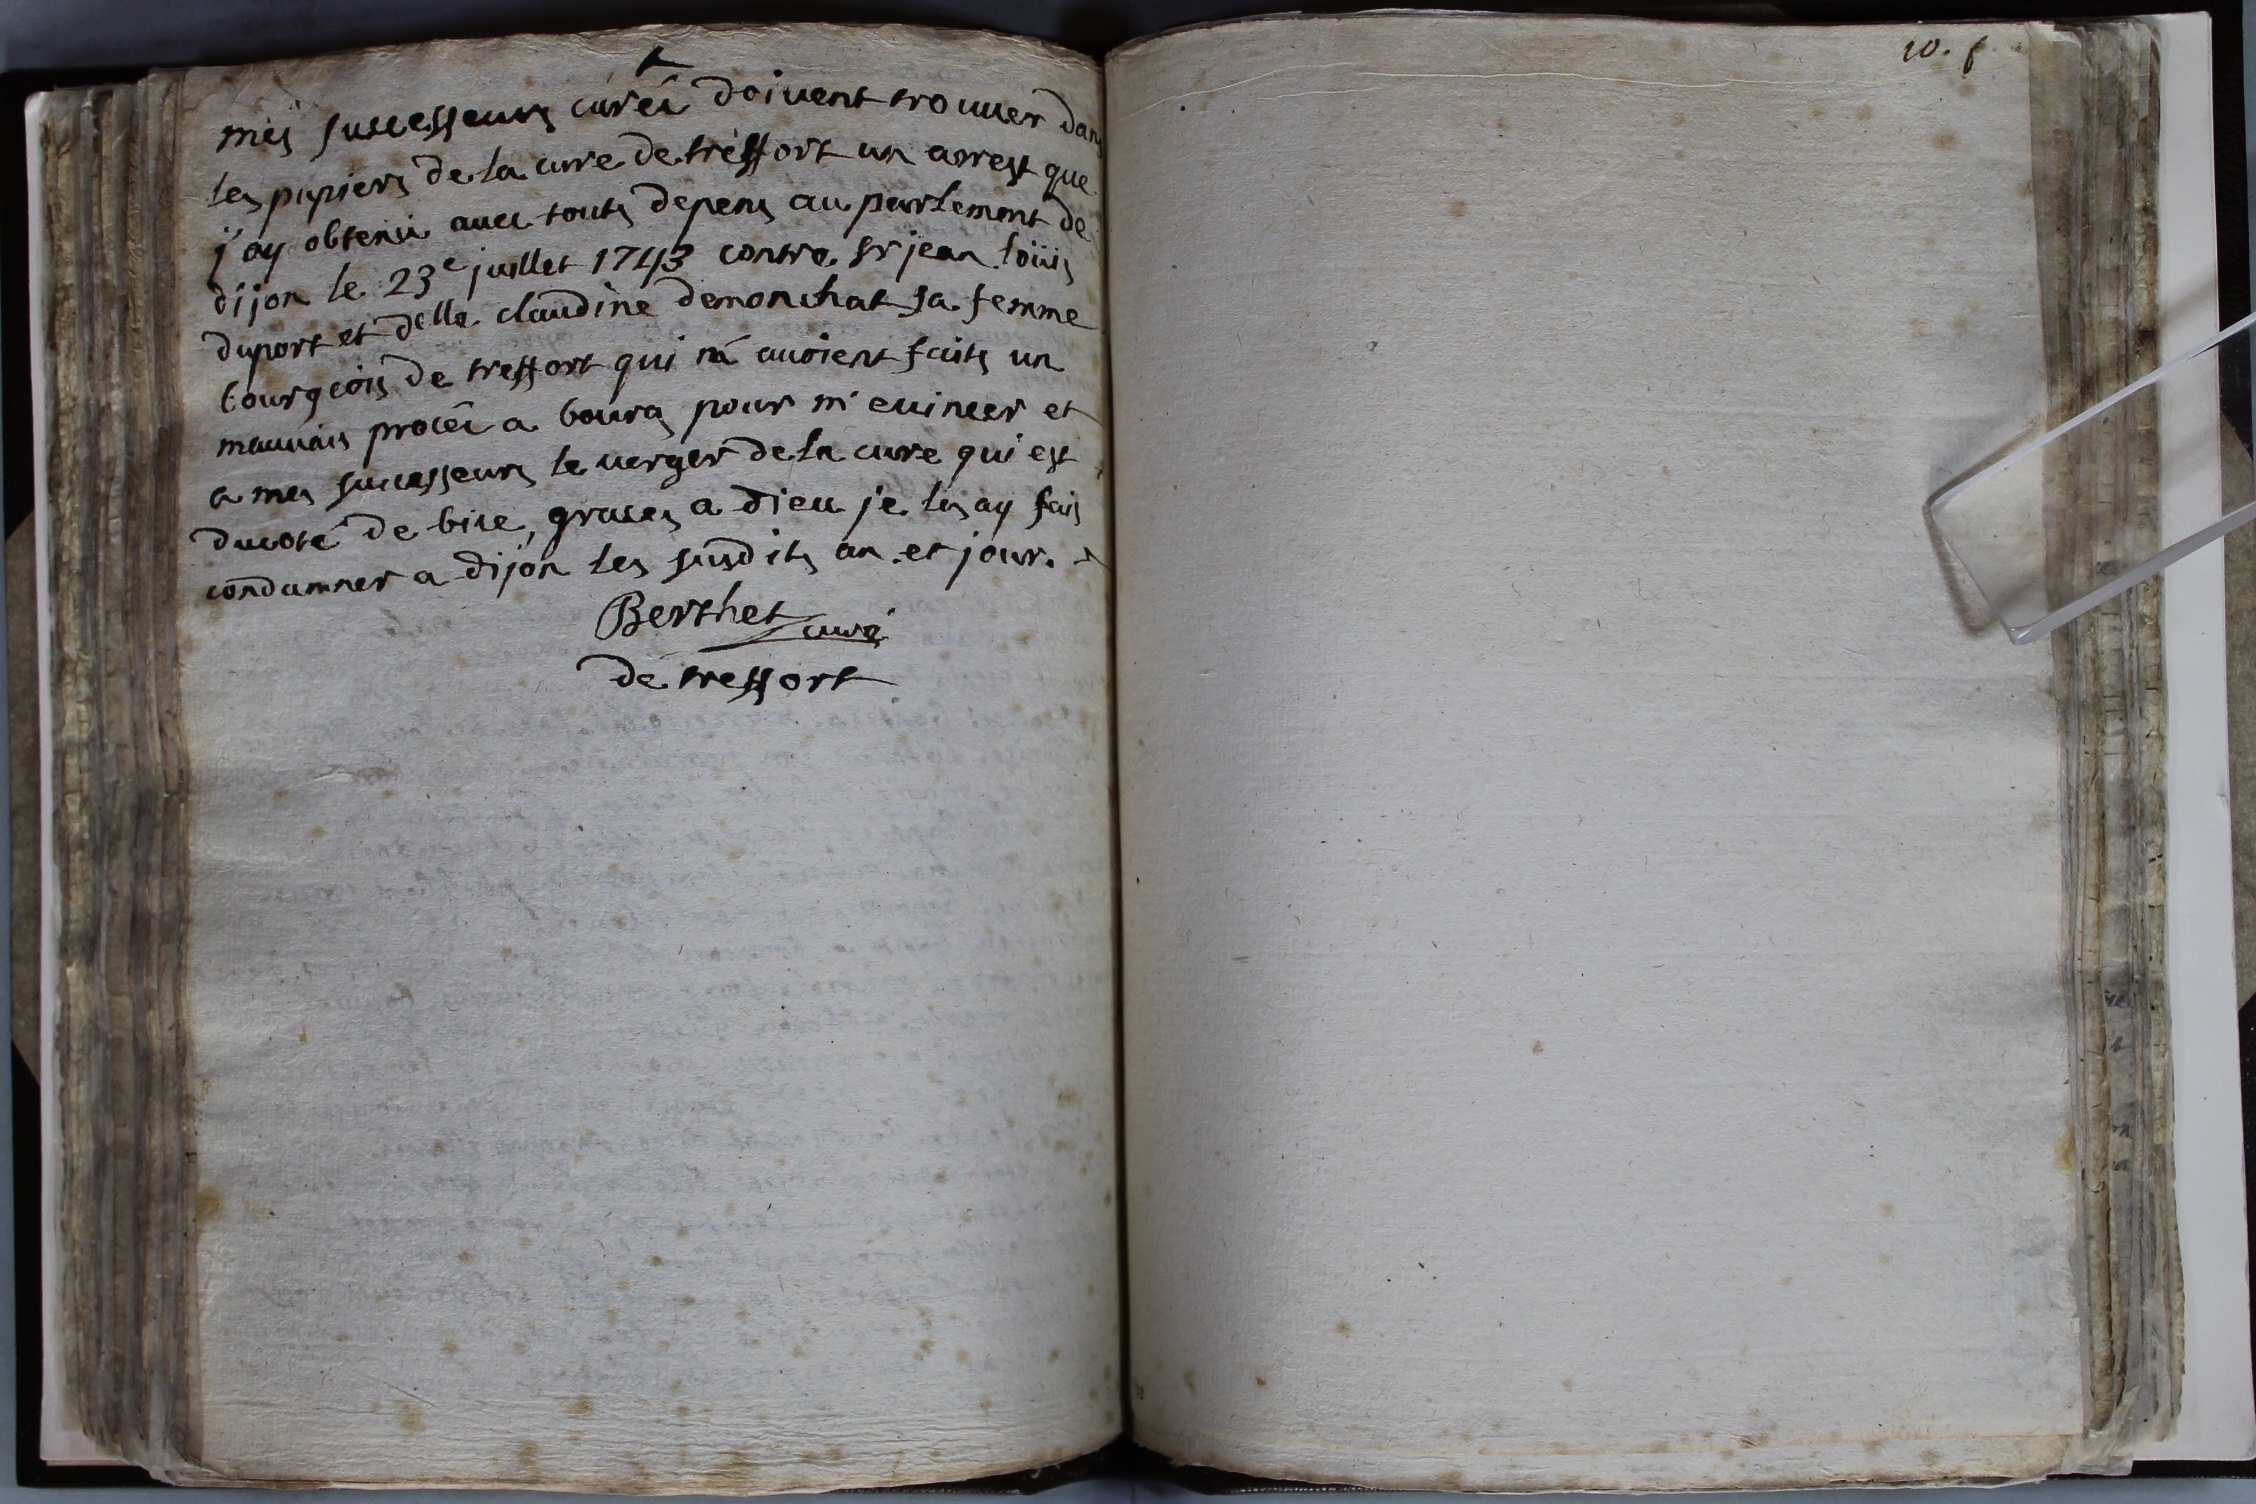 mes successeurs curés doivent trouver dans
les papiers de la cure de treffort un arrest que
j'ay obtenu avec touts depens au parlement de
dijon le 23e juillet 1743 contre sr jean loüis
duport et delle claudine demonchat sa femme
bourgeois de treffort qui m'avoient faits un
mauvais procés a bourg pour m'evincer et
a mes successeurs le verger de la cure qui est
du coté de bise, graces a dieu je les ay fais
condamner a dijon les susdits an et jour.
Berthet curé
de treffort
10. f